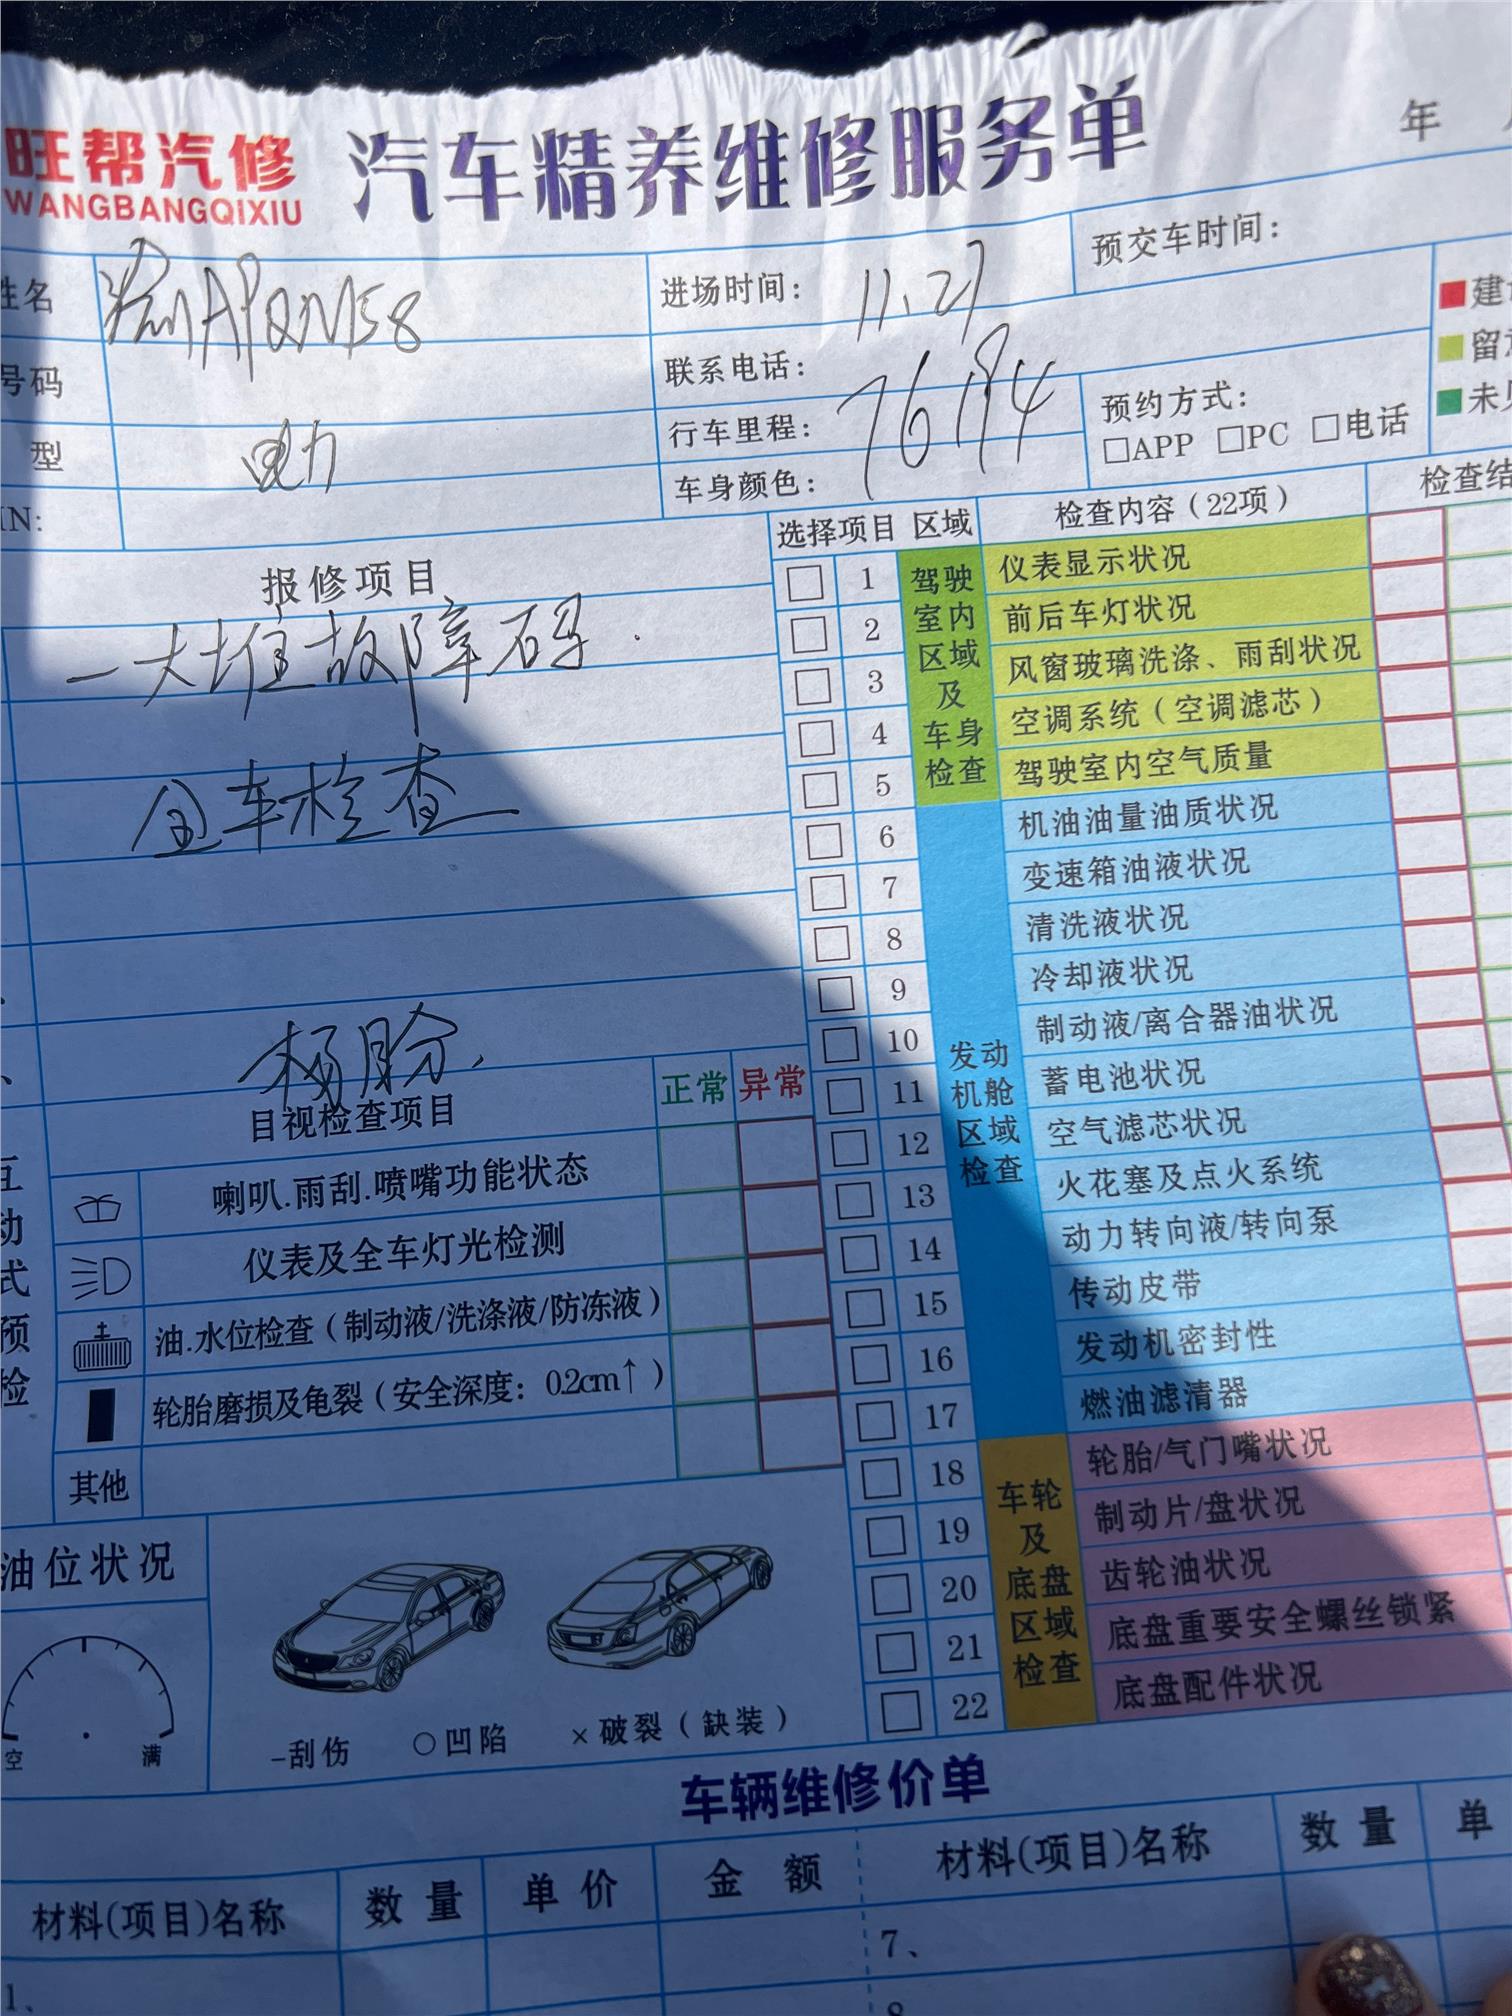 旺帮汽修
WANGBANGQIXIU
汽车精养维修服务单
年
姓名
进场时间： 11.27
预交车时间：
号码
联系电话：
型 电力
行车里程： 76194
车身颜色：
IN:
预约方式：
□APP □PC □电话
建
留
未
报修项目
一大堆故障码.
全车检查
选择项目 区域 检查内容（22项） 检查结
驾驶室内区域及车身检查
1 仪表显示状况
2 前后车灯状况
3 风窗玻璃洗涤、雨刮状况
4 空调系统（空调滤芯）
5 驾驶室内空气质量
发动机舱区域检查
6 机油油量油质状况
7 变速箱油液状况
8 清洗液状况
9 冷却液状况
10 制动液/离合器油状况
11 蓄电池状况
12 空气滤芯状况
13 火花塞及点火系统
14 动力转向液/转向泵
15 传动皮带
16 发动机密封性
17 燃油滤清器
车轮及底盘区域检查
18 轮胎/气门嘴状况
19 制动片/盘状况
20 齿轮油状况
21 底盘重要安全螺丝锁紧
22 底盘配件状况
互动式预检
目视检查项目 正常 异常
喇叭.雨刮.喷嘴功能状态
仪表及全车灯光检测
油.水位检查（制动液/洗涤液/防冻液）
轮胎磨损及龟裂（安全深度：0.2cm↑）
其他
油位状况
空 满
-刮伤 ○凹陷 ×破裂（缺装）
车辆维修价单
材料(项目)名称 数量 单价 金额 材料(项目)名称 数量 单
1、
7、
8